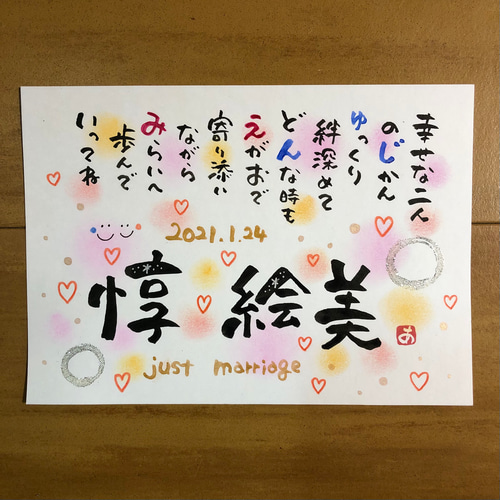 幸せな二人
のじかん
ゆっくり
絆深めて
どんな時も
えがおで
寄り添い
ながら
みらいへ
歩んで
いってね
2021.1.24
惇 絵美
just marriage
あ